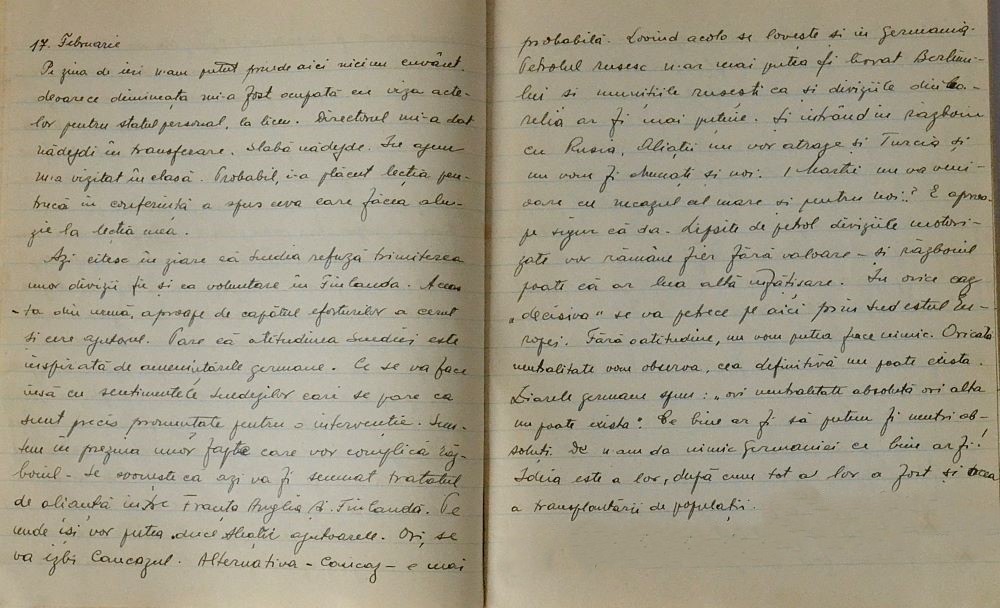 17. Februarie
Pe ziua de ieri n-am putut prinde aici niciun cuvânt.
deoarece dimineața mi-a fost ocupată cu viza acte-
lor pentru statul personal, la liceu. Directorul mi-a dat
nădejdi în transferare. Slabă nădejde. În ajun
m-a vizitat în clasă. Probabil, i-a plăcut lecția pen-
trucă în conferință a spus ceva care făcea alu-
zie la lecția mea.
Azi citesc în ziare că Suedia refuză trimiterea
unor divizii fie și ca voluntare în Finlanda. Aceas-
ta din urmă, aproape de capătul eforturilor a cerut
și cere ajutorul. Pare că atitudinea Suediei este
inspirată de amenințările germane. Ce se va face
însă cu sentimentele suedezilor cari se pare că
sunt precis pronunțate pentru o intervenție. Sun-
tem în preziua unor fapte care vor complică răz-
boiul. Se svonește că azi va fi semnat tratatul
de alianță între Franța Anglia și Finlanda. Pe
unde își vor putea duce Aliații ajutoarele. Ori, se
va izbi Caucazul. Alternativa - Caucaz - e mai
probabilă. Lovind acolo se lovește și în Germania.
Petrolul rusesc n-ar mai putea fi livrat Berlinu-
lui și munițiile rusești ca și diviziile din Ca-
relia ar fi mai puține. Și intrând în războiu
cu Rusia, Aliații nu vor atrage și Turcia și
nu vom fi chemați și noi. 1 Martie nu va veni
oare cu necazul cel mare și pentru noi? E aproa-
pe sigur că da. Lipsite de petrol diviziile motori-
zate vor rămâne fier fără valoare - și războiul
poate că ar lua altă înfățișare. În orice caz
„decisiva" se va petrece pe aici prin sud estul Eu-
ropei. Fără o atitudine, nu vom putea face nimic. Oricâtă
neutralitate vom observa, cea definitivă nu poate exista.
Ziarele germane spun: „ori neutralitate absolută ori alta
nu poate exista". Ce bine ar fi să putem fi neutri ab-
soluți. De n-am da nimic Germaniei ce bine ar fi!
Ideia este a lor, după cum tot a lor a fost și aceea
a transplantării de populații.